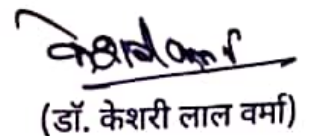 (डॉ. केशरी लाल वर्मा)